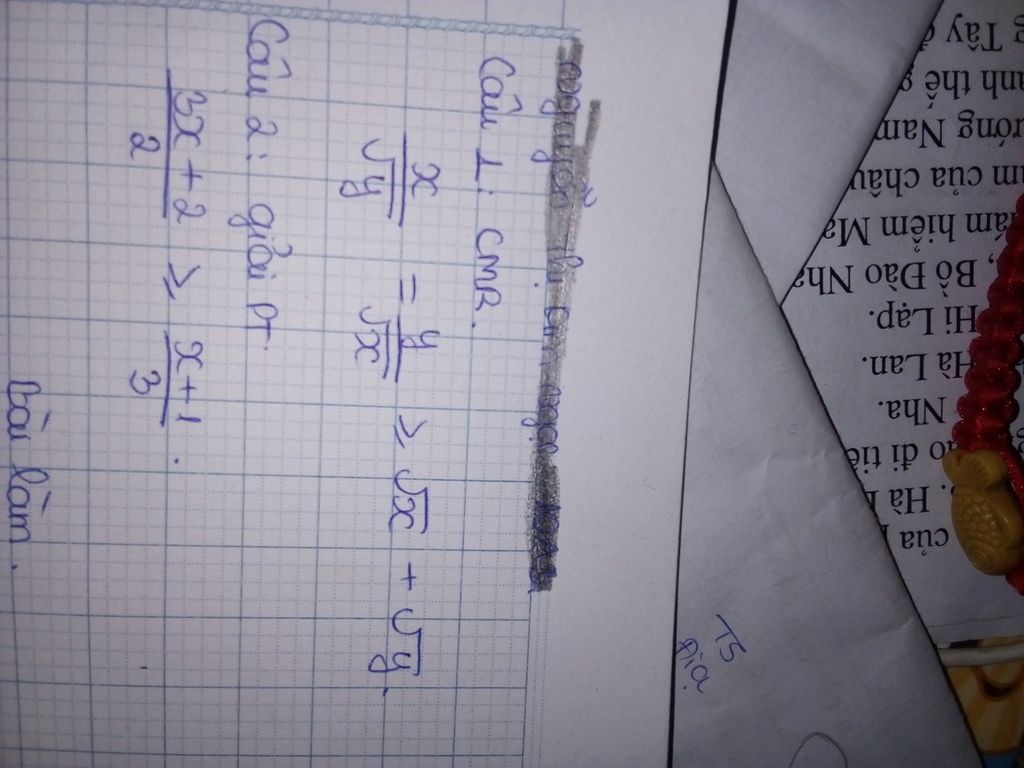 Câu 1: CMR.
x/√y = y/√x ≥ √x + √y.
Câu 2: giải PT.
3x + 2/2 ≥ x+1/3.
Bài làm.
TS
Địa
g Tây
anh thế
ướng Nam
am của châu
ám hiểm Ma
, Bồ Đào Nha
Hi Lạp.
Hà Lan.
Nha.
ao đi tiê
. Hà
của